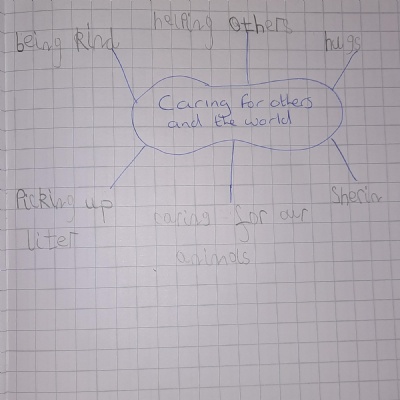 helping others
being kind
hugs
Caring for others
and the world
Picking up
liter
caring for our
animals
Sherin